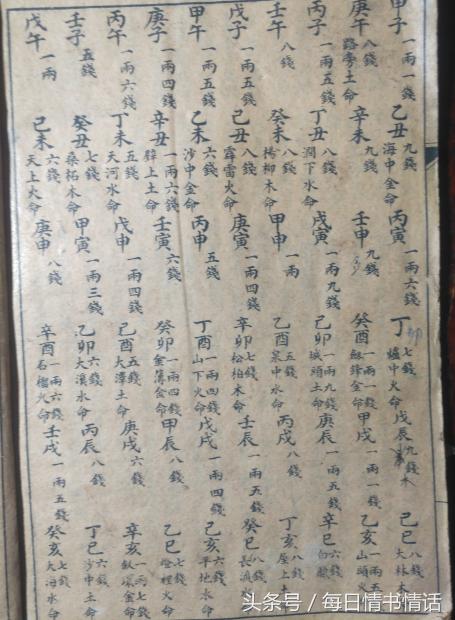 甲子一兩一錢 乙丑九錢海中金命 丙寅一兩六錢 丁卯七錢爐中火命 戊辰九錢木 己巳八錢大林木
庚午八錢路旁土命 辛未九錢 壬申九錢 癸酉一兩一錢劍鋒金命 甲戌一兩一錢 乙亥一兩五山頭火
丙子一兩五錢 丁丑八錢澗下水命 戊寅一兩九錢 己卯一兩九錢城頭土命 庚辰一兩五錢 辛巳六錢白臘
壬午八錢 癸未八錢楊柳木命 甲申一兩 乙酉五錢泉中水命 丙戌八錢 丁亥八錢屋上
戊子一兩五錢 己丑八錢霹雷火命 庚寅一兩四錢 辛卯七錢松柏木命 壬辰一兩五錢 癸巳八錢長流
甲午一兩五錢 乙未六錢沙中金命 丙申五錢 丁酉一兩四錢山下火命 戊戌一兩四錢 己亥六錢平地水命
庚子一兩四錢 辛丑一兩六錢辟上土命 壬寅六錢 癸卯一兩四錢金簿金命 甲辰八錢 乙巳七錢燈裡火命
丙午一兩六錢 丁未五錢天河水命 戊申一兩四錢 己酉五錢大澤土命 庚戌六錢 辛亥一兩七錢釵環金命
壬子五錢 癸丑七錢桑柘木命 甲寅一兩三錢 乙卯六錢大溪水命 丙辰八錢 丁巳六錢沙中土命
戊午一兩 己未六錢天上火命 庚申八錢 辛酉一兩六錢石榴火命 壬戌一兩五錢 癸亥七錢大海水命
头条号 / 每日情书情话